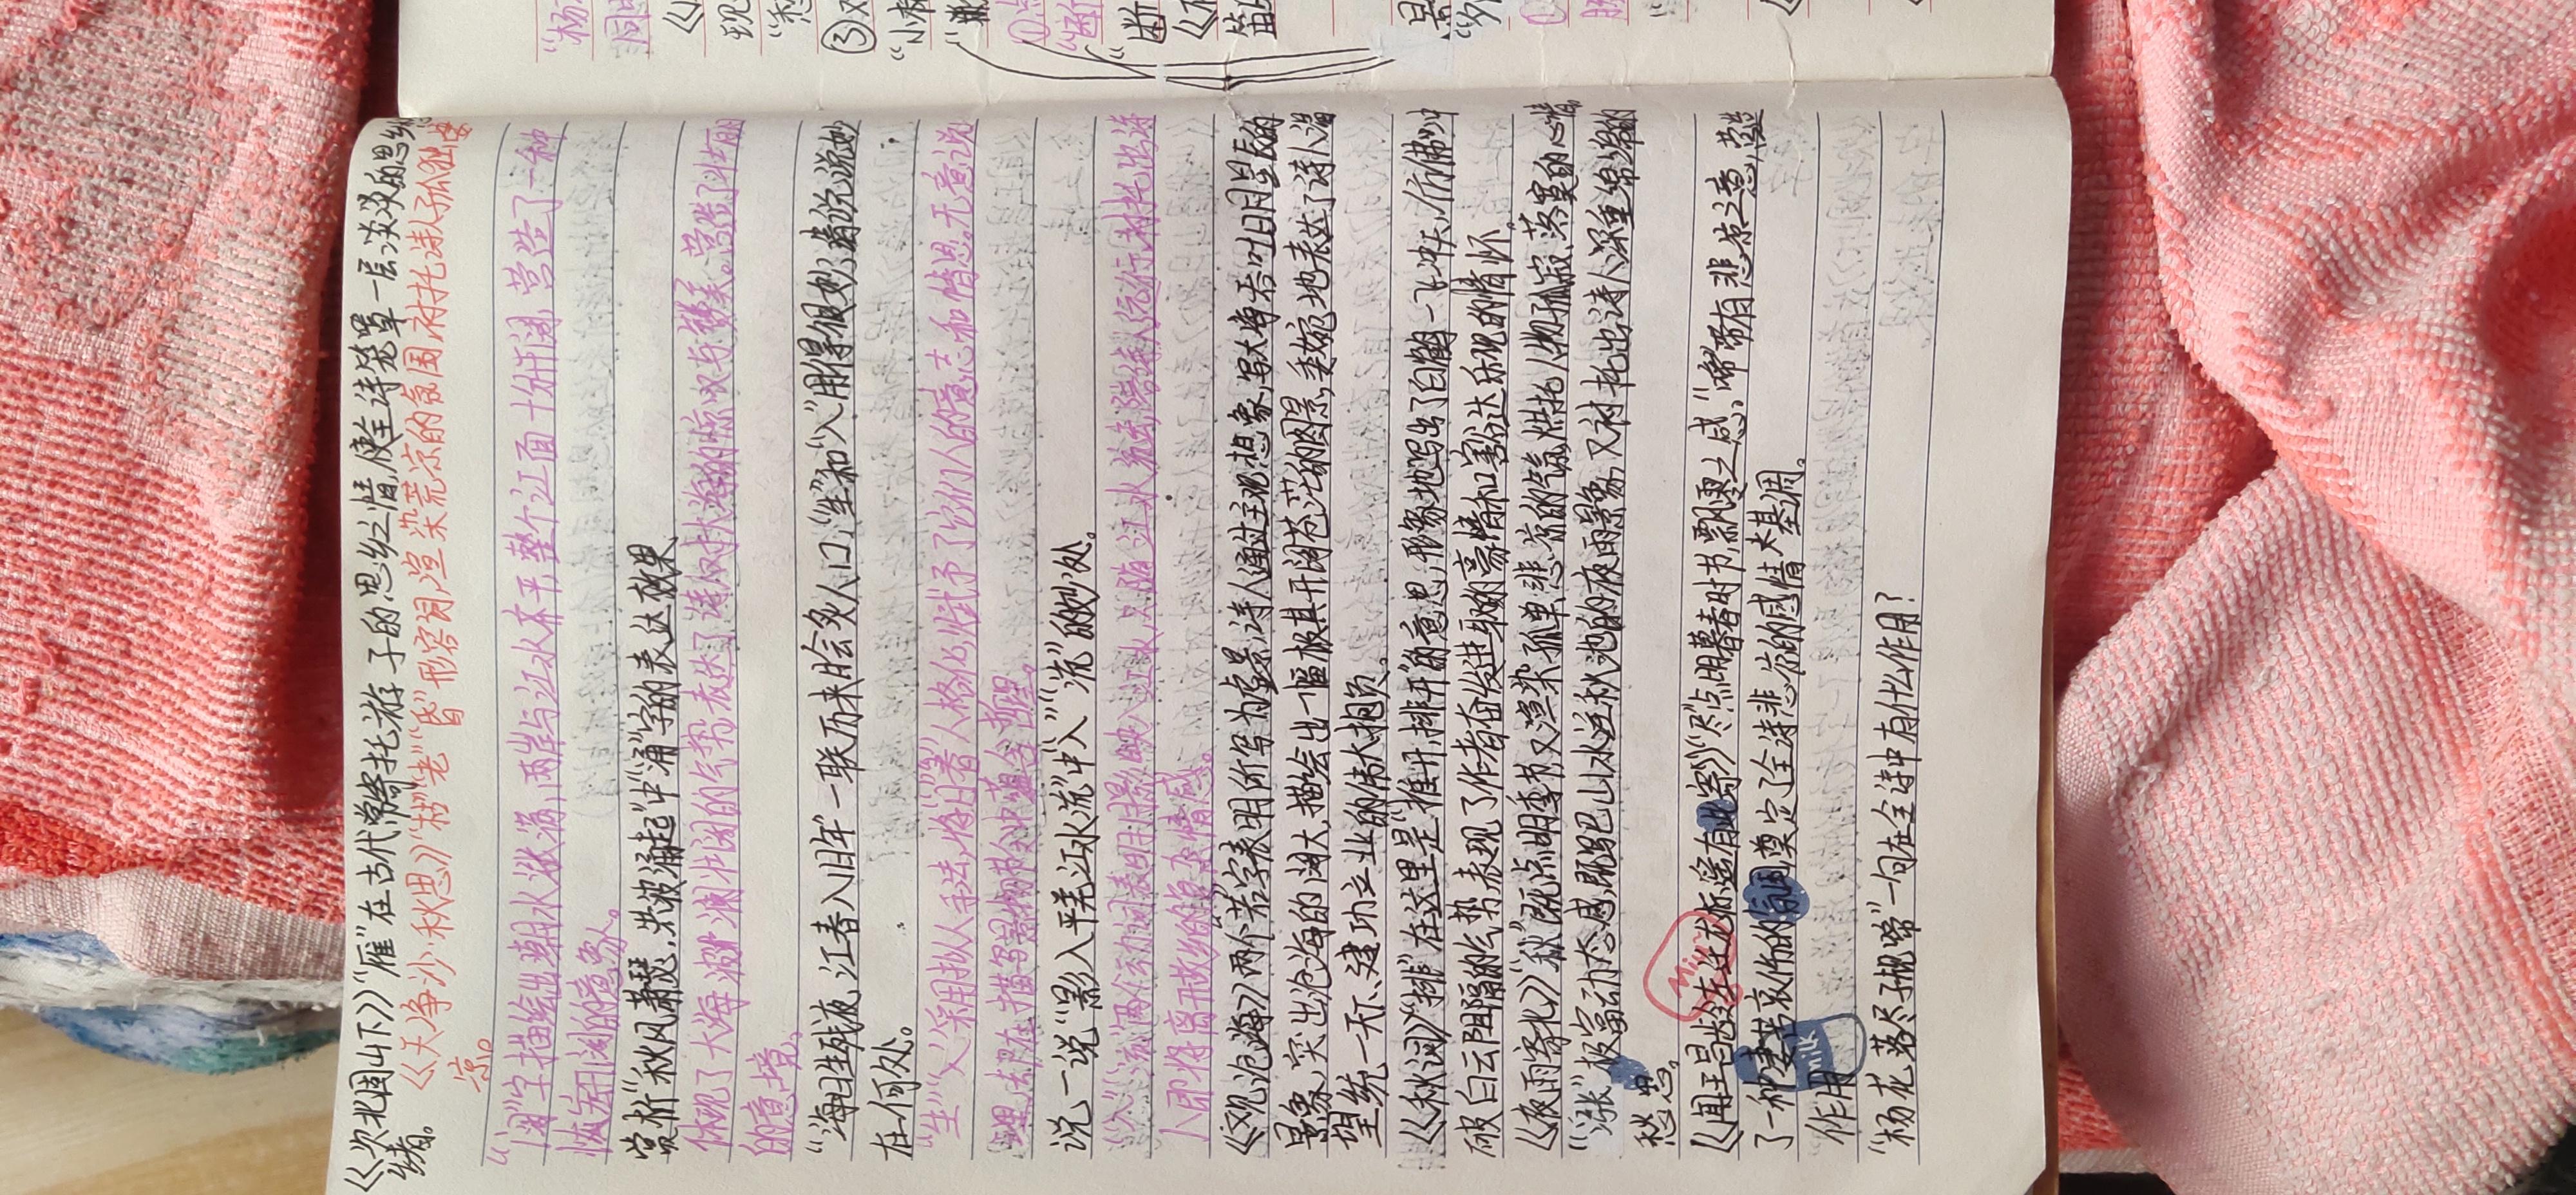 《次北固山下》"雁"在古代常寄托游子的思乡之情,使全诗笼罩一层淡淡的思乡
绪。
《天净沙·秋思》"枯""老""昏"形容词,渲染荒凉的氛围,衬托诗人孤独
凉。
"阔"字描绘出潮水涨满,两岸与江水齐平,整个江面十分开阔,营造了一种
恢宏开阔的意象。
赏析"秋风萧瑟,洪波涌起"中"涌"字的表达效果
体现了大海 汹涌 澎湃壮阔的气势,表达了诗人对大海的惊叹与赞美。营造了壮丽
的意境。
"海日生残夜,江春入旧年"一联历来脍炙人口,"生"和"入"用得很妙,请说说妙
在何处。
"生""入"采用拟人手法,将日春人格化,赋予了它们人的意志和情思。无意说
理,却在描写景物中蕴含哲理。
说一说"影入平羌江水流"中"入""流"的妙处。
"入""流"两个动词表明月影映入江水,又随江水流去,陪诗人远行,衬托出诗
人即将离开故乡的复杂情感。
《观沧海》两个若字表明所写为虚景,诗人通过主观想象,写大海吞吐日月星辰的
景象,突出沧海的阔大,描绘出一幅极其开阔苍茫的图景,委婉地表达了诗人渴
望统一天下、建功立业的伟大抱负。
《秋词》"排"在这里是"推开,排开"的意思,形象地写出了白鹤一飞冲天,仿佛冲
破白云阻隔的气势,表现了作者奋发进取的豪情和豁达乐观的情怀。
《夜雨寄北》"秋"既点明季节,又渲染孤单悲凉的气氛,烘托人物孤寂、落寞的心情
"涨"极富动态感,既写巴山水涨秋池的夜雨景象,又衬托出诗人深重绵绵的
愁思。
《闻王昌龄左迁龙标遥有此寄》"尽"点明暮春时节,飘零之感,"啼"带有悲凉之意,营造
了一种凄楚哀伤的氛围,奠定了全诗悲凉的感情大基调。
作用
"杨花落尽子规啼"一句在全诗中有什么作用?
Milk
milk